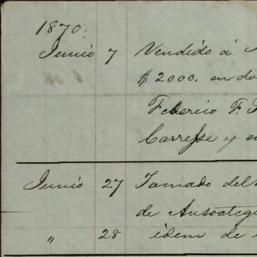 1870.
Junio 7 Vendido á
$2000. en do
Federico F.
Carresse y e
Junio 27 Tomado del
de Ansoategu
" 28 idem de